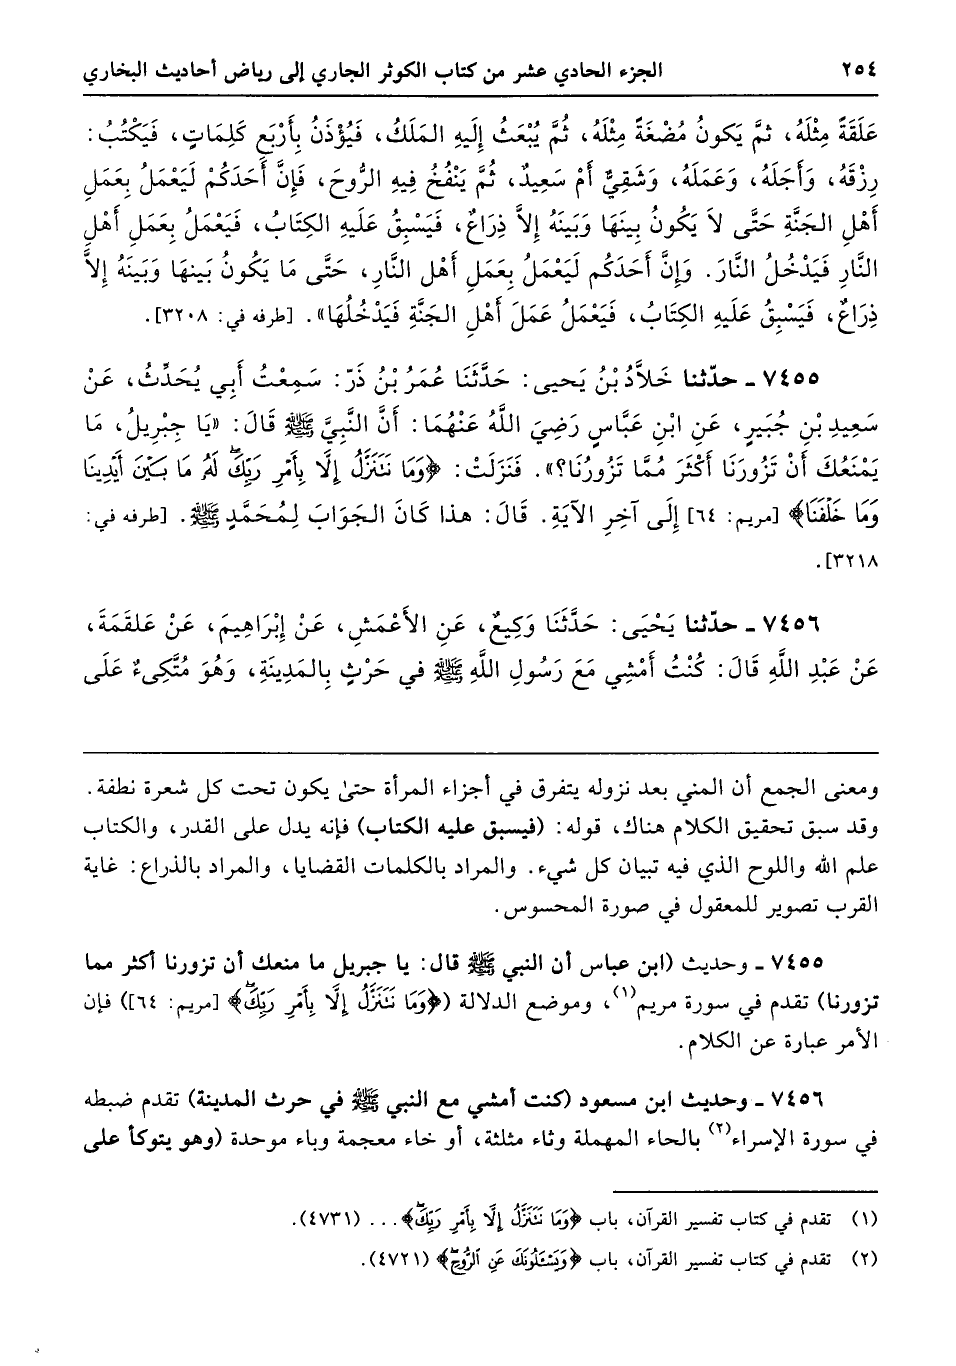 ٢٥٤ الجزء الحادي عشر من كتاب الكوثر الجاري إلى رياض أحاديث البخاري
عَلَقَةً مِثْلَهُ، ثمَّ يَكونُ مُضْغَةً مِثْلَهُ، ثُمَّ يُبْعَثُ إِلَيهِ المَلَكُ، فَيُؤْذَنُ بِأَرْبَعِ كَلِمَاتٍ، فَيَكْتُبُ:
رِزْقَهُ، وَأَجَلَهُ، وَعَمَلَهُ، وَشَقِيٌّ أَمْ سَعِيدٌ، ثُمَّ يَنْفُخُ فِيهِ الرُّوحَ، فَإِنَّ أَحَدَكُمْ لَيَعْمَلُ بِعَمَلِ
أَهْلِ الجَنَّةِ حَتَّى لاَ يَكُونُ بينَهَا وَبَينَهُ إِلاَّ ذِرَاعٌ، فَيَسْبِقُ عَلَيهِ الكِتَابُ، فَيَعْمَلُ بِعَمَلِ أَهْلِ
النَّارِ فَيَدْخُلُ النَّارَ. وَإِنَّ أَحَدَكُم لَيَعْمَلُ بِعَمَلِ أَهْلِ النَّارِ، حَتَّى مَا يَكُونُ بَينهَا وَبَينَهُ إِلاَّ
ذِرَاعٌ، فَيَسْبِقُ عَلَيهِ الكِتَابُ، فَيَعْمَلُ عَمَلَ أَهْلِ الجَنَّةِ فَيَدْخُلُهَا». [طرفه في: ٣٢٠٨].
٧٤٥٥ ـ حدّثنا خَلاَّدُ بْنُ يَحيى: حَدَّثَنَا عُمَرُ بْنُ ذَرّ: سَمِعْتُ أَبِي يُحَدِّثُ، عَنْ
سَعِيدِ بْنِ جُبَيرٍ، عَنِ ابْنِ عَبَّاسٍ رَضِيَ اللَّهُ عَنْهُمَا: أَنَّ النَّبِيَّ ﷺ قَالَ: «يَا جِبْرِيلُ، مَا
يَمْنَعُكَ أَنْ تَزُورَنَا أَكْثَرَ مُمَّا تَزُورُنَا؟». فَنَزَلَتْ: ﴿وَمَا نَتَنَزَّلُ إِلَّا بِأَمْرِ رَبِّكَۖ لَهُ مَا بَيْنَ أَيْدِينَا
وَمَا خَلْفَنَا﴾ [مريم: ٦٤] إِلَى آخِرِ الآيَةِ. قَالَ: هذا كَانَ الجَوَابَ لِمُحَمَّدٍ ﷺ. [طرفه في:
٣٢١٨].
٧٤٥٦ ـ حدّثنا يَحْيَى: حَدَّثَنَا وَكِيعٌ، عَنِ الأَعْمَشِ، عَنْ إِبْرَاهِيمَ، عَنْ عَلقَمَةَ،
عَنْ عَبْدِ اللَّهِ قَالَ: كُنْتُ أَمْشِي مَعَ رَسُولِ اللَّهِ ﷺ في حَرْثٍ بِالمَدِينَةِ، وَهُوَ مُتَّكِىءٌ عَلَى
ومعنى الجمع أن المني بعد نزوله يتفرق في أجزاء المرأة حتىٰ يكون تحت كل شعرة نطفة.
وقد سبق تحقيق الكلام هناك، قوله: (فيسبق عليه الكتاب) فإنه يدل على القدر، والكتاب
علم الله واللوح الذي فيه تبيان كل شيء. والمراد بالكلمات القضايا، والمراد بالذراع: غاية
القرب تصوير للمعقول في صورة المحسوس.
٧٤٥٥ ـ وحديث (ابن عباس أن النبي ﷺ قال: يا جبريل ما منعك أن تزورنا أكثر مما
تزورنا) تقدم في سورة مريم(١)، وموضع الدلالة (﴿وَمَا نَتَنَزَّلُ إِلَّا بِأَمْرِ رَبِّكَۖ﴾ [مريم: ٦٤]) فإن
الأمر عبارة عن الكلام.
٧٤٥٦ ـ وحديث ابن مسعود (كنت أمشي مع النبي ﷺ في حرث المدينة) تقدم ضبطه
في سورة الإسراء(٢) بالحاء المهملة وثاء مثلثة، أو خاء معجمة وباء موحدة (وهو يتوكأ على
(١) تقدم في كتاب تفسير القرآن، باب ﴿وَمَا نَتَنَزَّلُ إِلَّا بِأَمْرِ رَبِّكَۖ﴾... (٤٧٣١).
(٢) تقدم في كتاب تفسير القرآن، باب ﴿وَيَسْـَٔلُونَكَ عَنِ ٱلرُّوحِۖ﴾ (٤٧٢١).